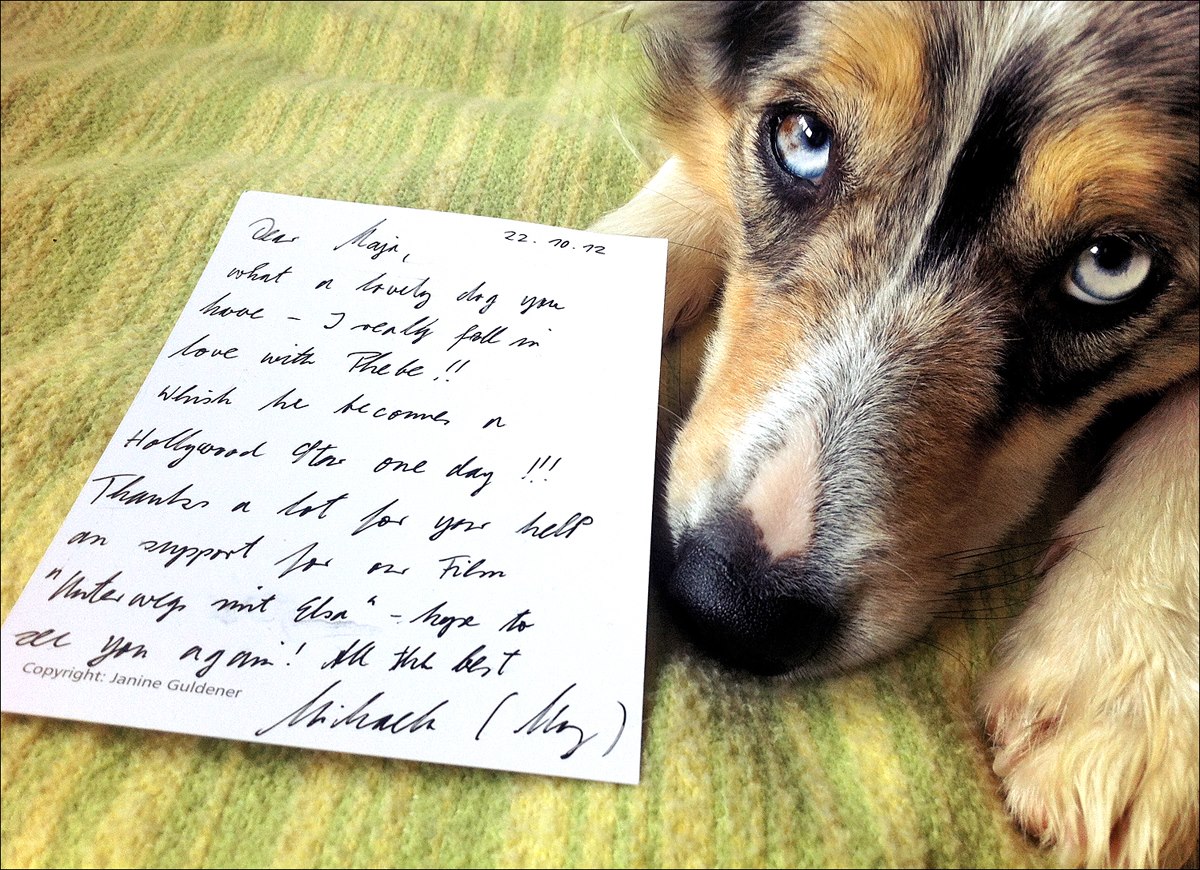 22.10.12
Dear Maja,
what a lovely dog you
have – I really fall in
love with Phebe!!
Whish he becomes a
Hollywood Star one day!!!
Thanks a lot for your help
an support for our Film
"Unterwegs mit Elsa" – hope to
see you again! All the best
Copyright: Janine Guldener
Michaela (May)